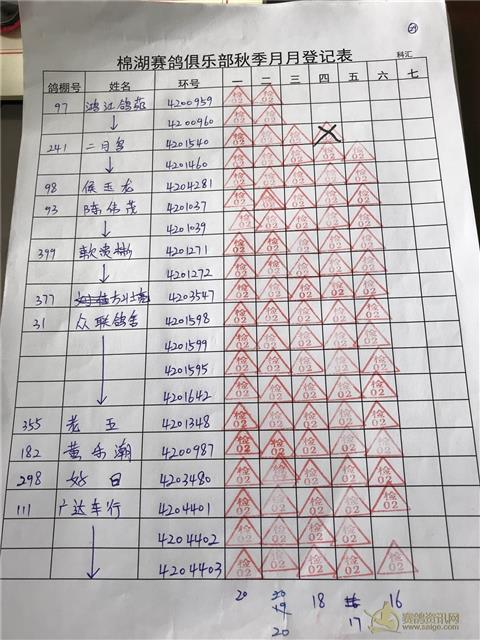 29
棉湖赛鸽俱乐部秋季月月登记表 科汇
鸽棚号 姓名 环号 一 二 三 四 五 六 七
97 鸿江鸽苑 4200959 检02 检02
↓ 4200960 检02 检02
241 二目鸟 4201540 检02 检02 检02
↓ 4201460 检02 检02 检02 检02 检02
98 侯玉龙 4204281 检02 检02 检02 检02 检02
93 陈伟茂 4201037 检02 检02 检02 检02 检02 检02
↓ 4201039 检02 检02 检02 检02 检02 检02
399 4201271 检02 检02 检02 检02 检02 检02
↓ 4201272 检02 检02 检02 检02 检02 检02
377 4203547 检02 检02 检02 检02 检02 检02
31 众联鸽舍 4201598 检02 检02 检02 检02 检02 检02
4201599 检02 检02 检02 检02 检02 检02
4201595 检02 检02 检02 检02 检02 检02
↓ 4201642 检02 检02 检02 检02 检02 检02
355 老玉 4201348 检02 检02 检02 检02 检02 检02
182 黄乐潮 4200987 检02 检02 检02 检02 检02 检02
298 好日 4203480 检02 检02 检02 检02 检02 检02
111 广达车行 4204401 检02 检02 检02 检02 检02 检02
4204402 检02 检02 检02 检02 检02
↓ 4204403 检02 检02 检02 检02 检02 检02
20 20 18 16
19 17
20
赛鸽资讯网
www.saige.com